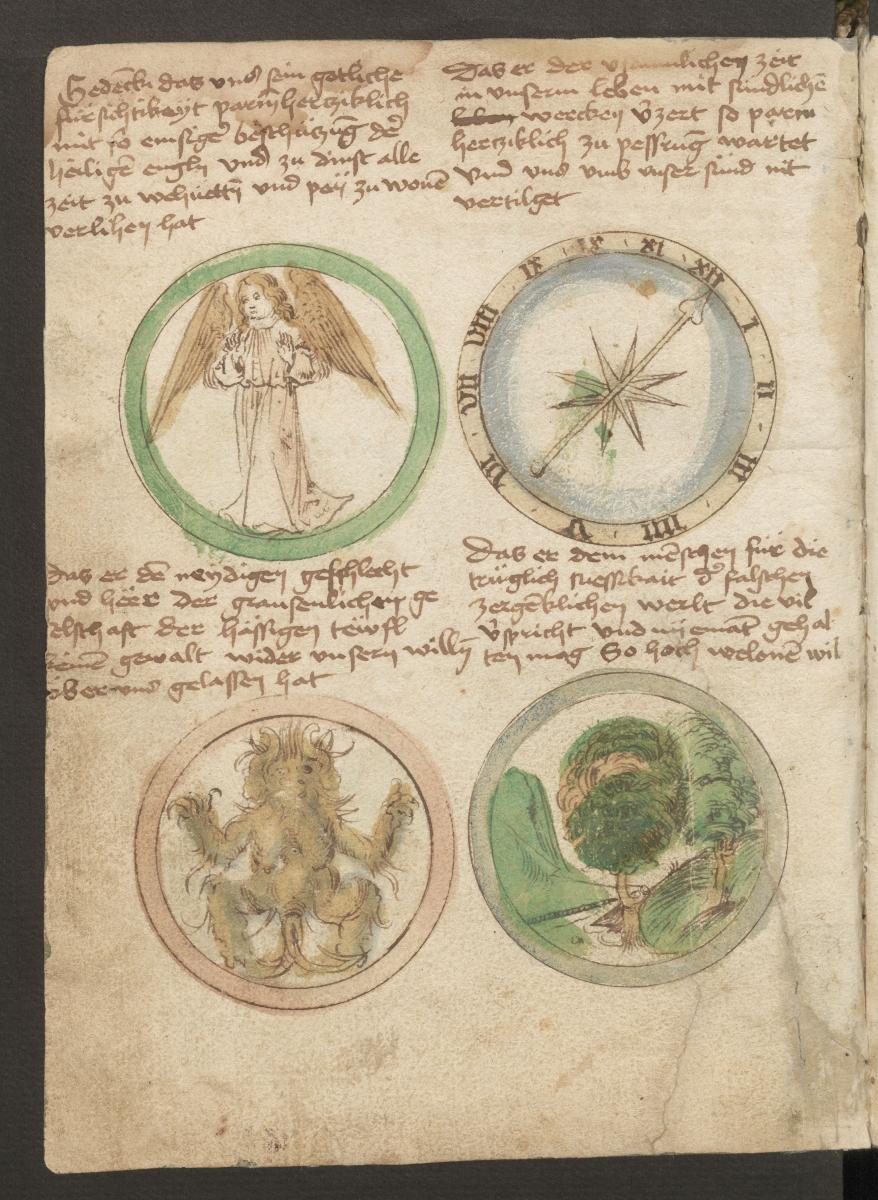 Gedenck das uns sein gotliche
fürsichtikeyt parmherziklich
mit so emsiger beschützūg der
heiligē engln und zu dinst alle
zeit zu wehuettn und pey zu wonē
verlihen hat
Das er der zeit
in unserm leben mit sündlichē
wercken v̄zert so parm
hertziklich zu pessrūg wartet
Und uns umb unser sünd nit
vertilget
IX
XI
XII
I
II
III
IIII
V
VII
VIII
IX
das er dē neydigen geschlecht
und here der grausenlichen ge
elschaft der hässigen tewfl
keinē gewalt wider unsern willn̄
über uns gelassen hat
Das er dem mēnschen für die
trüglich suesskait d̄ falschen
zergēklichen werlt die vil
v̄spricht und nyemāt gehal
ten mag So hoch welonē wil